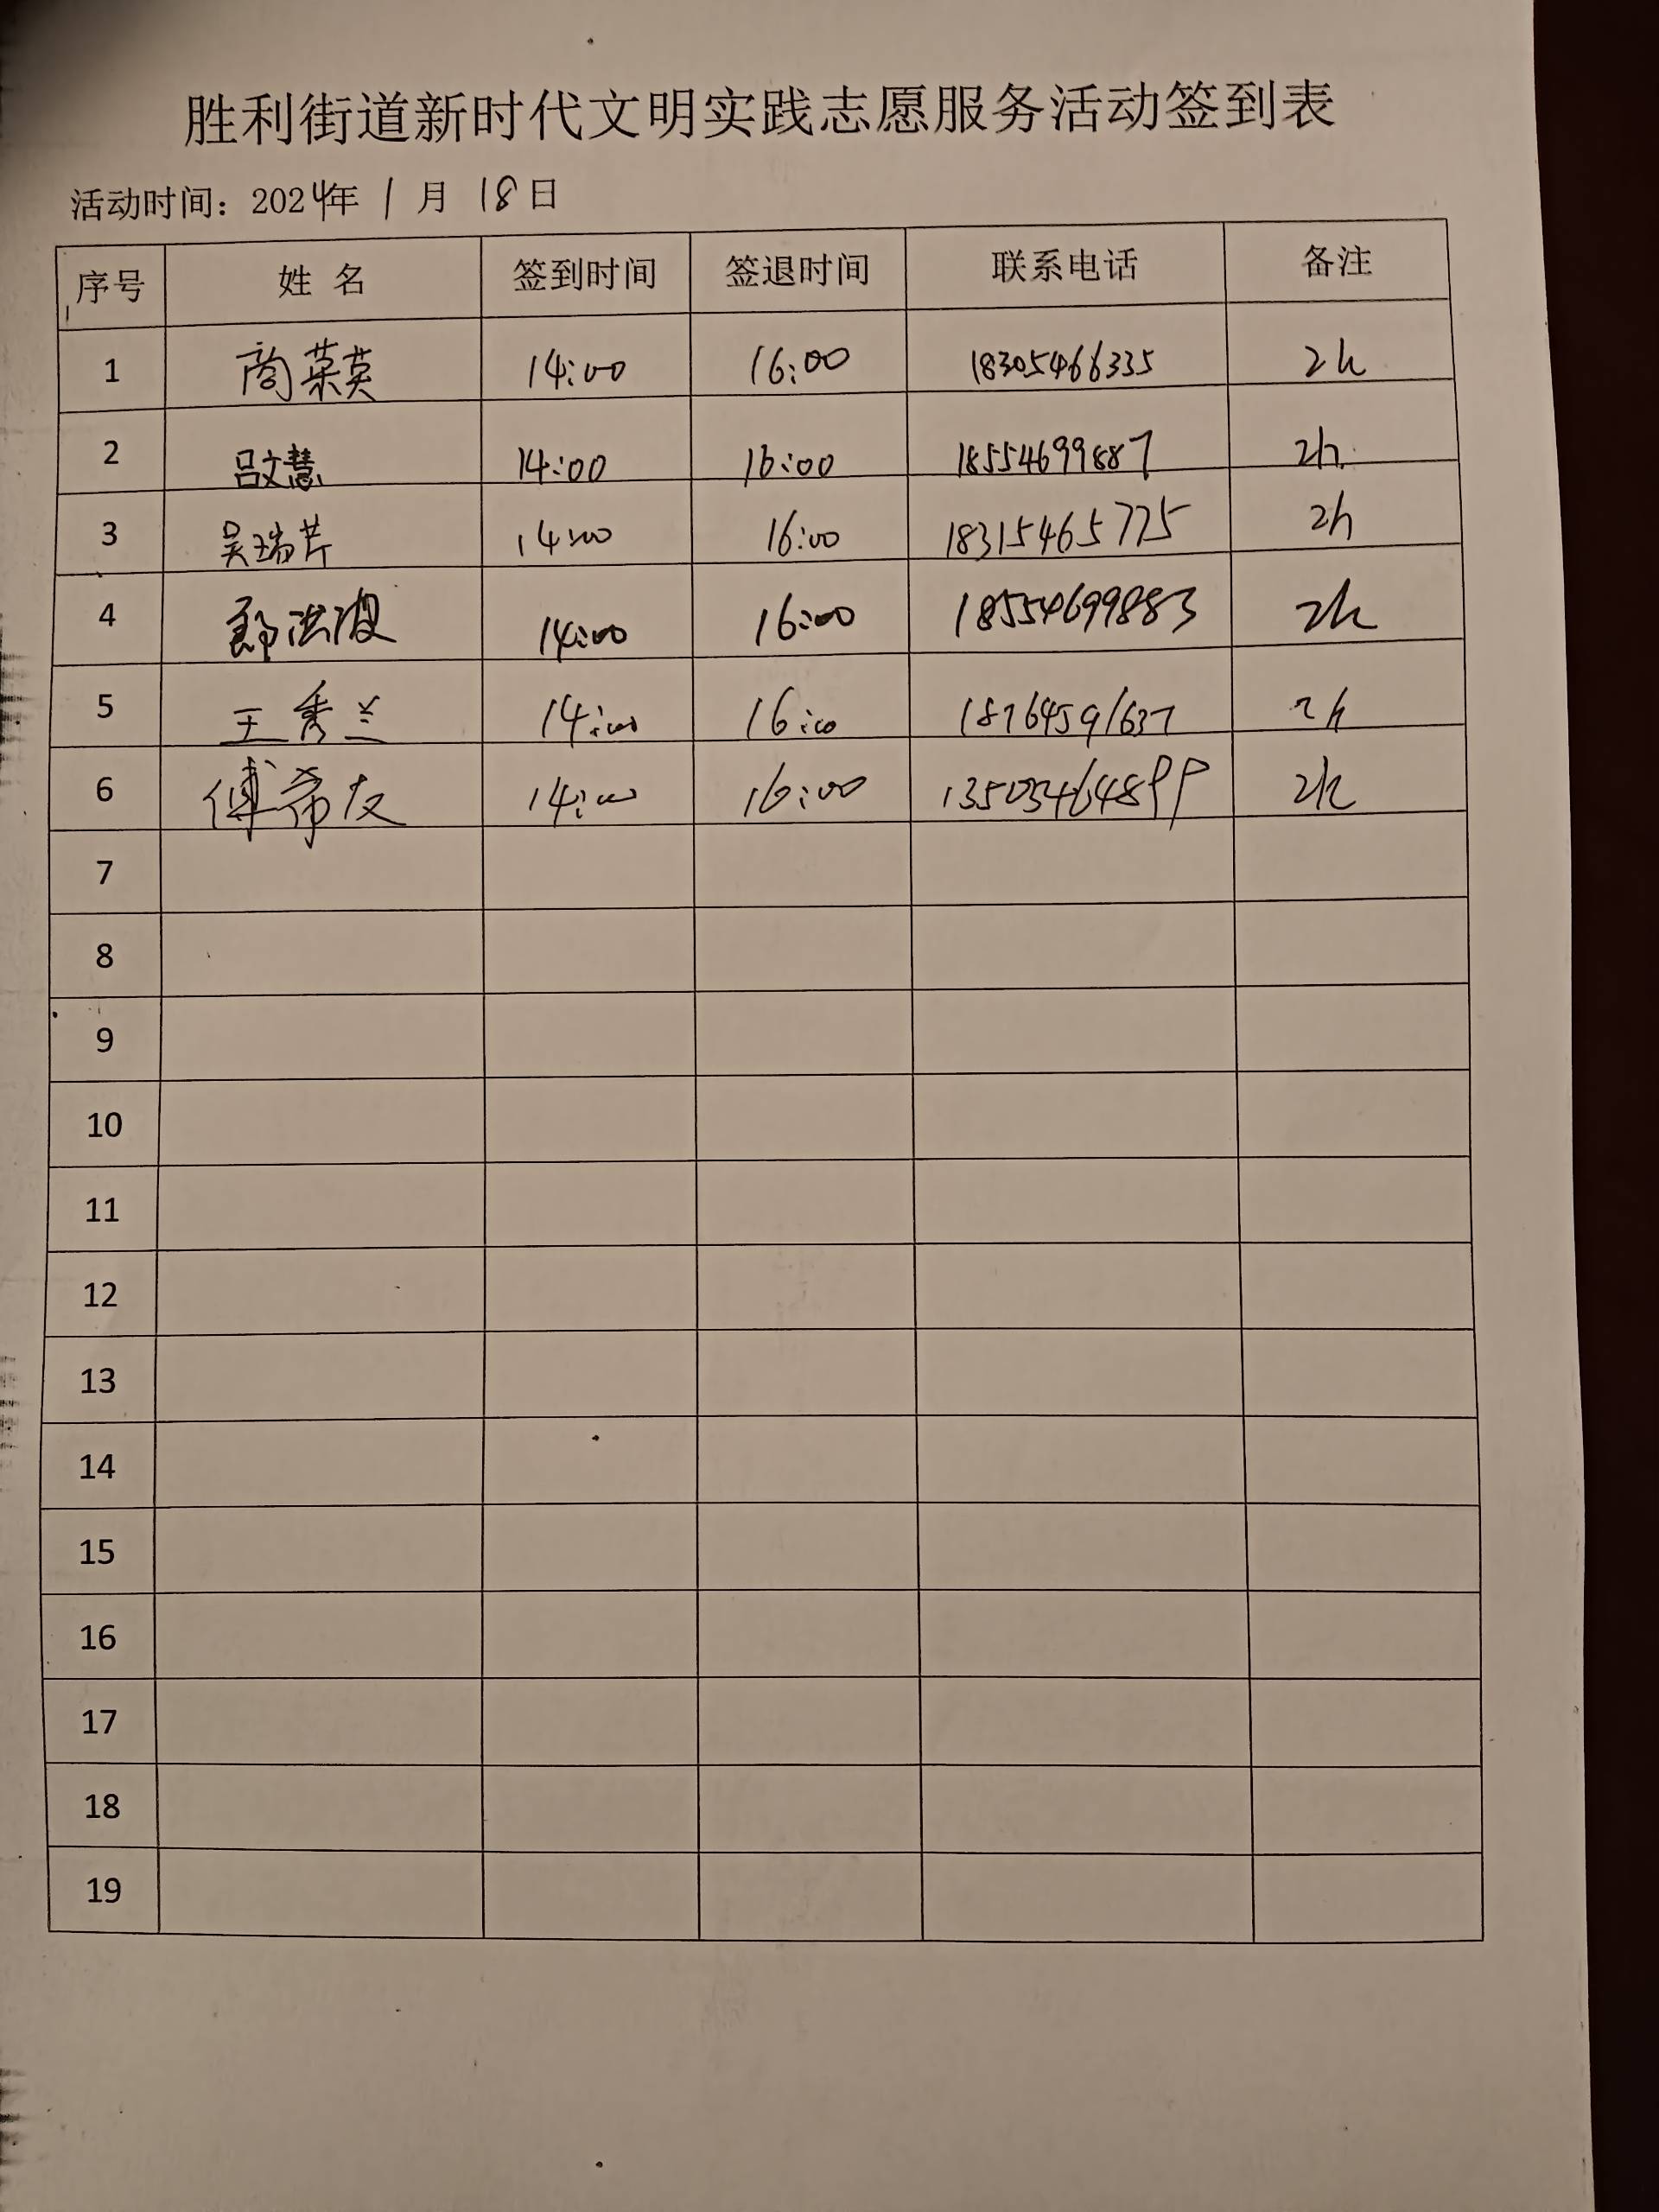 胜利街道新时代文明实践志愿服务活动签到表
活动时间：2024年 1 月 18 日
序号 姓 名 签到时间 签退时间 联系电话 备注
1 商荣英 14:00 16:00 18305466335 2h
2 吕文慧 14:00 16:00 18554699887 2h
3 吴瑞芹 14:00 16:00 18315465775 2h
4 14:00 16:00 18554699883 2h
5 王秀兰 14:00 16:00 18764591637 2h
6 傅希友 14:00 16:00 13503464899 2h
7
8
9
10
11
12
13
14
15
16
17
18
19